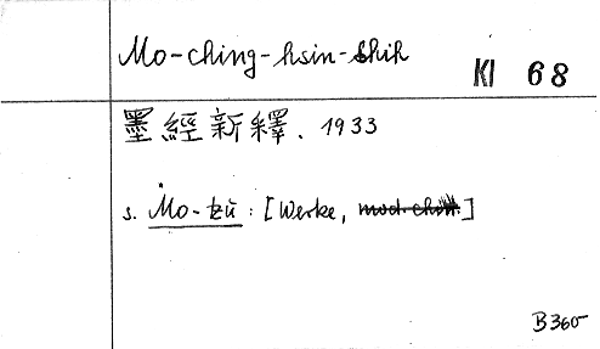 Mo-ching-hsin-shih
KI 68
墨經新釋. 1933
s. Mo-tzŭ: [Werke, mod. chin.]
B360